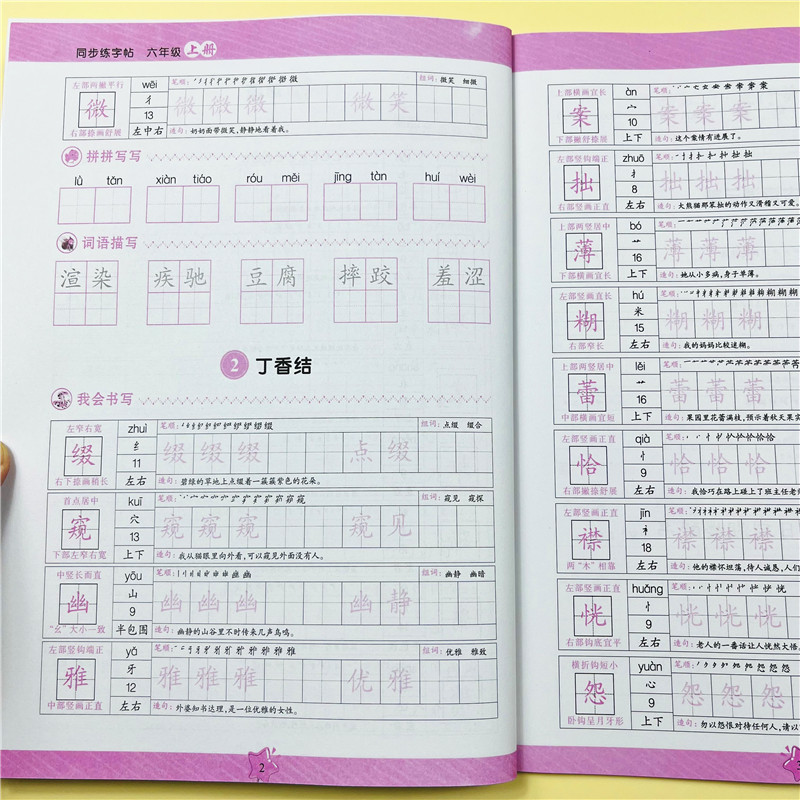 同步练字帖 六年级 上册
左部两撇平行
微
右部捺画舒展
wēi
彳
13
左中右
笔顺：
组词：微笑 细微
微 微 微 微 笑
造句：奶奶面带微笑，静静地看着我。
拼拼写写
lǜ tǎn xiàn tiáo róu měi jīng tàn huí wèi
词语描写
渲染 疾驰 豆腐 摔跤 羞涩
2 丁香结
我会书写
左窄右宽
缀
右下捺画稍长
zhuì
纟
11
左右
笔顺：
组词：点缀 缀合
缀 缀 缀 点 缀
造句：碧绿的草地上点缀着一簇簇紫色的花朵。
首点居中
窥
下部左窄右宽
kuī
穴
13
上下
笔顺：
组词：窥见 窥探
窥 窥 窥 窥 见
造句：我从猫眼里向外看，可以窥见外面没有人。
中竖长而直
幽
“幺”大小一致
yōu
山
9
半包围
笔顺：
组词：幽静 幽暗
幽 幽 幽 幽 静
造句：幽静的山谷里不时传来几声鸟鸣。
左部竖钩端正
雅
中部竖画正直
yǎ
牙
12
左右
笔顺：
组词：优雅 雅致
雅 雅 雅 优 雅
造句：外婆知书达理，是一位优雅的女性。
2
上部横画宜长
案
下部撇舒捺展
àn
宀
10
上下
笔顺：
案 案 案
造句：这个案情有进展了。
左部竖钩端正
拙
右部竖画正直
zhuō
扌
8
左右
笔顺：
拙 拙 拙
造句：大熊猫那笨拙的动作又滑稽又可爱。
上部两竖居中
薄
下部横画宜长
bó
艹
16
上下
笔顺：
薄 薄 薄
造句：她从小多病，身子单薄。
左部竖画宜长
糊
右部窄长
hú
米
15
左右
笔顺：
糊 糊 糊
造句：我的妈妈比较迷糊。
上部两竖居中
蕾
中部横画宜短
lěi
艹
16
上下
笔顺：
蕾 蕾 蕾
造句：果园里花蕾满枝，预示着秋天果实
左部竖画正直
恰
右部撇捺舒展
qià
忄
9
左右
笔顺：
恰 恰 恰
造句：我恰巧在路上碰上了班主任老师
左部竖画正直
襟
两“木”相靠
jīn
衤
18
左右
笔顺：
襟 襟 襟
造句：他的襟怀坦荡，待人诚恳，人们
左部竖画正直
恍
右部钩底宜平
huǎng
忄
9
左右
笔顺：
恍 恍 恍
造句：老人的一番话让人恍然大悟。
横折钩短小
怨
卧钩呈月牙形
yuàn
心
9
上下
笔顺：
怨 怨 怨
造句：勿以怨恨对待任何人，请以
3